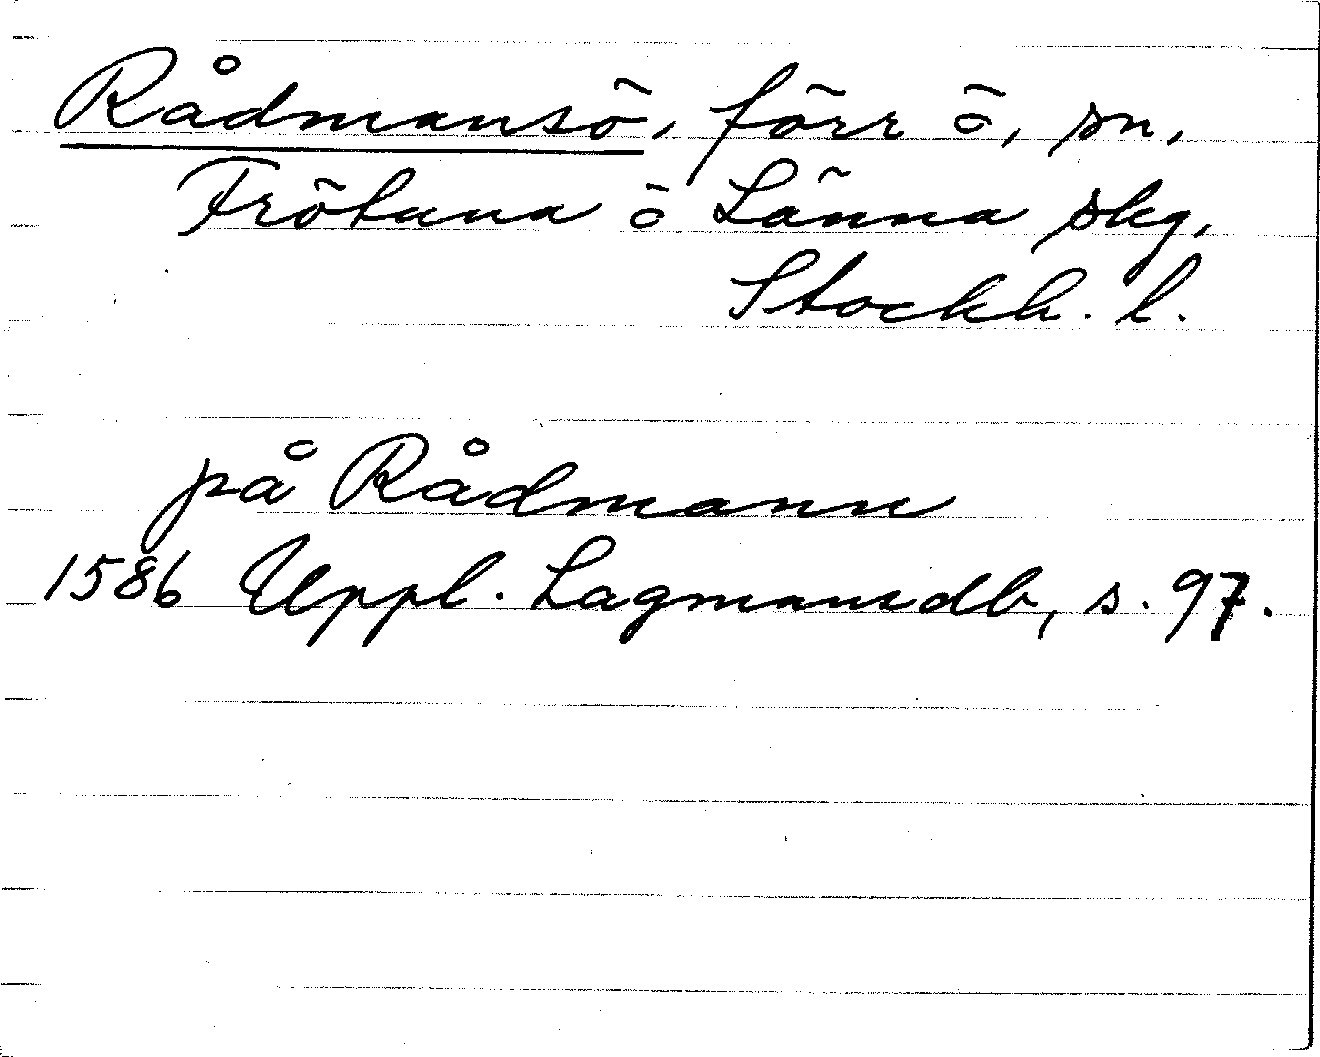 Rådmansö, förr ö, sn,
Frötuna ö Länna skg,
Stockh. l.
på Rådmann
1586 Uppl. Lagmansdb, s. 97.